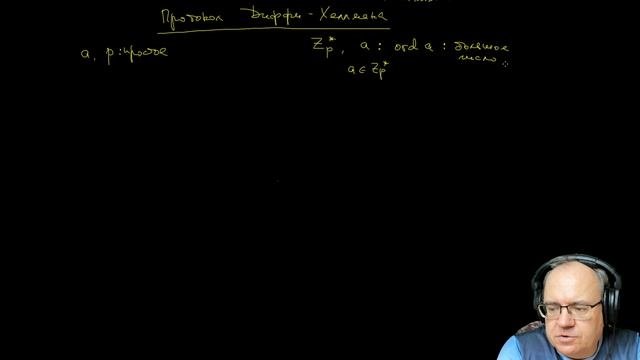 Протокол Диффи-Хеллмана
a, p: простое
Zp*, a : ord a : большое
число
a ∈ Zp*